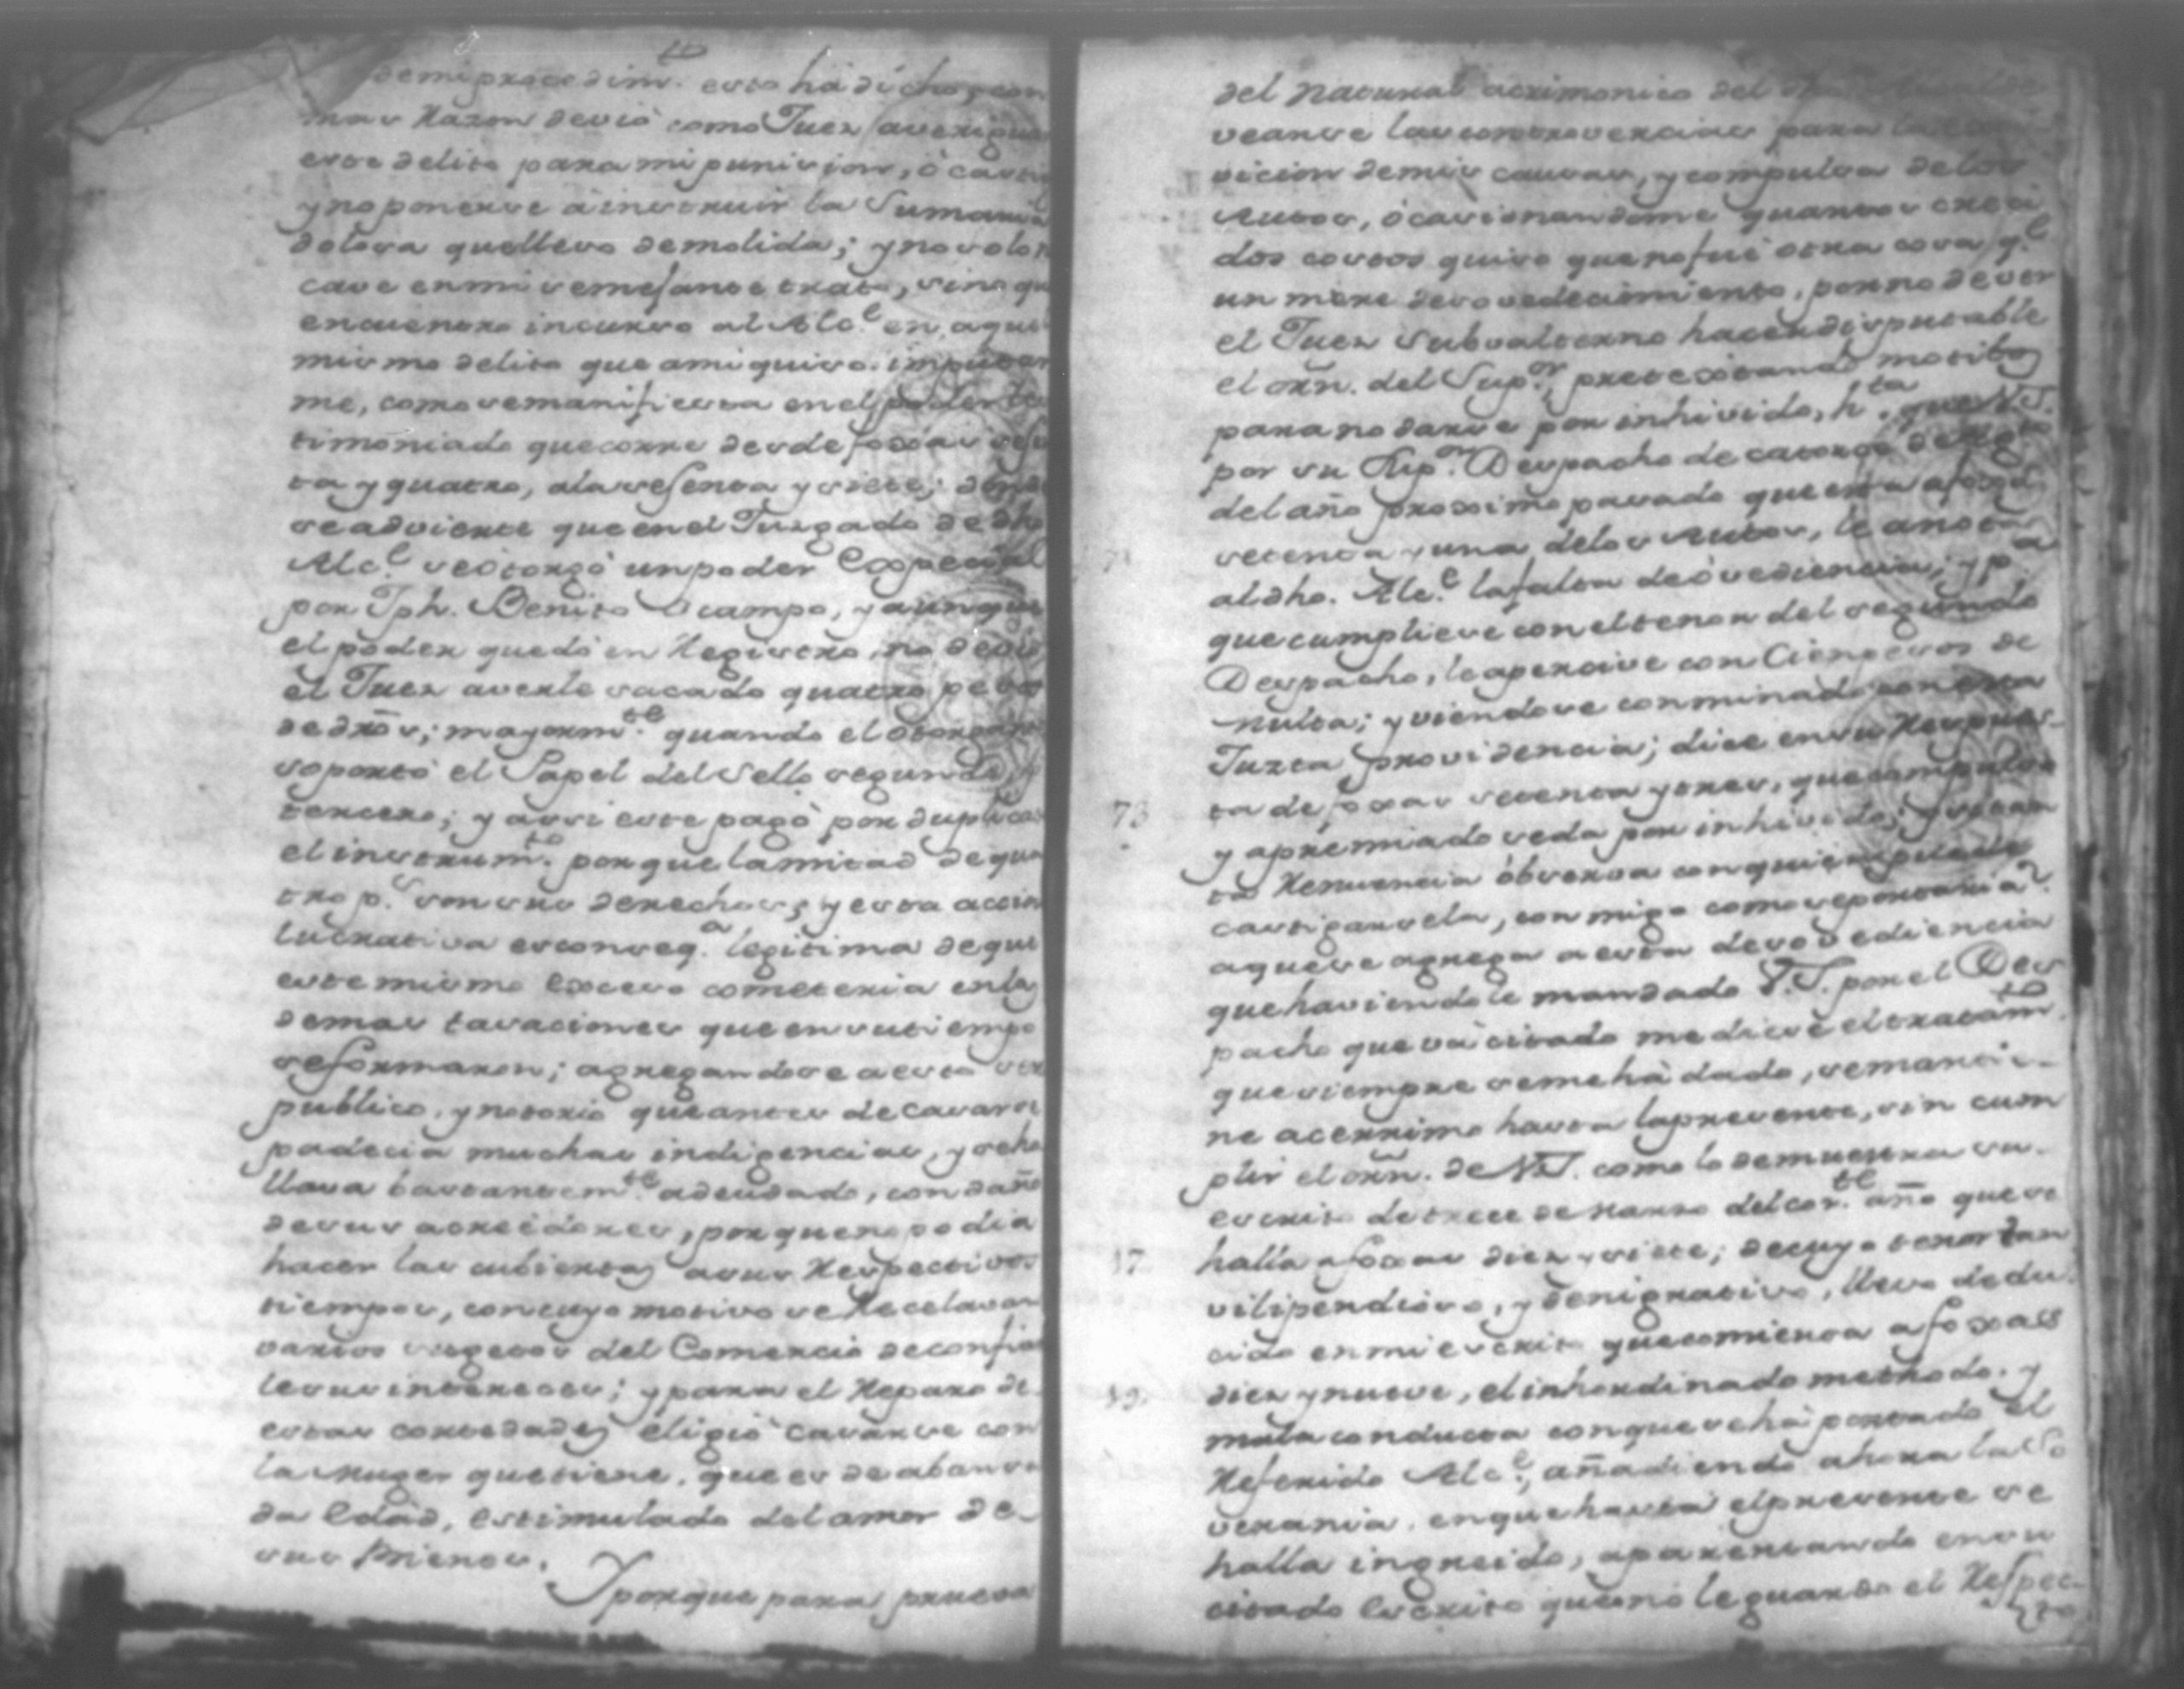 demi procedim.^to esto há dicho, con
mas Razon devió como Juez averiguar
este delito para mi punision, ò casti
y no ponerse à instruir la Sumaria
dolosa que lleva demolida; y no solo
cave en mi semejante trato, sino qu
encuentro incurso al Alc.^e en, aquel
mismo delito que ami quiso imputar
me, como se manifiesta en el poder tes
timoniado que corre desde foxas sesen
ta y quatro, ala sesenta y siete; donde
se adviente que en el Juzgado de dho
Alc.^e se otorgó un poder Especial
por Jph. Benito Ocampo, y aunque
el poder quedó en Registro, no devió
el Juez averle sacado quatro pesos
de drõs; mayorm.^te quando el otorgante
soportó el Papel del Sello segundo, y
tercero; y assi este pagò por duplicado
el instrum.^to porque la mitad de qua
tro p.^s son sus derechos, y esta accion
lucrativa es conseq.^a legitima de que
este mismo Exceso cometeria en las
demas tasaciones que en su tiempo
se formaron; agregandose a esto ser
publico, y notorio que antes de casarse
padecia muchas indigencias, y se ha
llava bastantem.^te adeudado, con daño
de sus acreedores, porque no podia
hacer las cubiertas a sus Respectivos
tiempos, con cuyo motivo se Recelavan
varios sugetos del Comercio de confiar
le sus intereses; y para el Reparo de
estas cortedades eligió casarse con
la Muger que tiene, que es de abanza
da Edad, estimulado del amor de
sus Bienes.
Y porque para prueva
del natural acrimonico del
veanse las controversias para la
sicion de mis causas, y compulsa delos
Autos, ocasionandome quantos creci
dos costos quiso que no fue otra cosa q.^e
un mere desovedecimiento, por no dever
el Juez Subvalterno hacer disputable
el orñ. del Sup.^or, pretextando motibos
para no darse por inhivido, h.^ta que V.S.
por su Sup.^or Despacho de catorce de
del año proximo pasado que esta afoxas
71 setenta y una delos Autos, le anota
al dho. Alc.^e la falta de ovediencia; y p.^a
que cumpliese con el tenor del segundo
Despacho, le apercive con Cien pesos de
multa; y viendose conminado con esta
Justa providencia; dice en su Respues-
73 ta de foxas setenta y tres, que compulso
y apremiado se da por inhivido; y
ta Renuencia observa con quien puede
castigarsela, con migo como reportaria?
aque se agrega a esta desovediencia
que haviendole mandado V.S. por el Des
pacho que vá citado me diese el tratam.^to
que siempre se me há dado, se mantie-
ne acerrimo hasta la presente, sin cum
plir el orñ. de V.S. como lo demuestra su
escrito de trece de Marzo del cor.^te año que se
17. halla afoxas diez y siete; de cuyo tenor tan
vilipendioso, y denigrativo, llevo dedu
cido en mi escrito que comienza a foxas
19. diez y nueve, el inhordinado methodo, y
mala conducta con que se há portado el
Referido Alc.^e; añadiendo ahora la So
verania, en que hasta el presente se
halla ingreido, aparentando en su
citado Escrito que no le guardo el Respec-
to